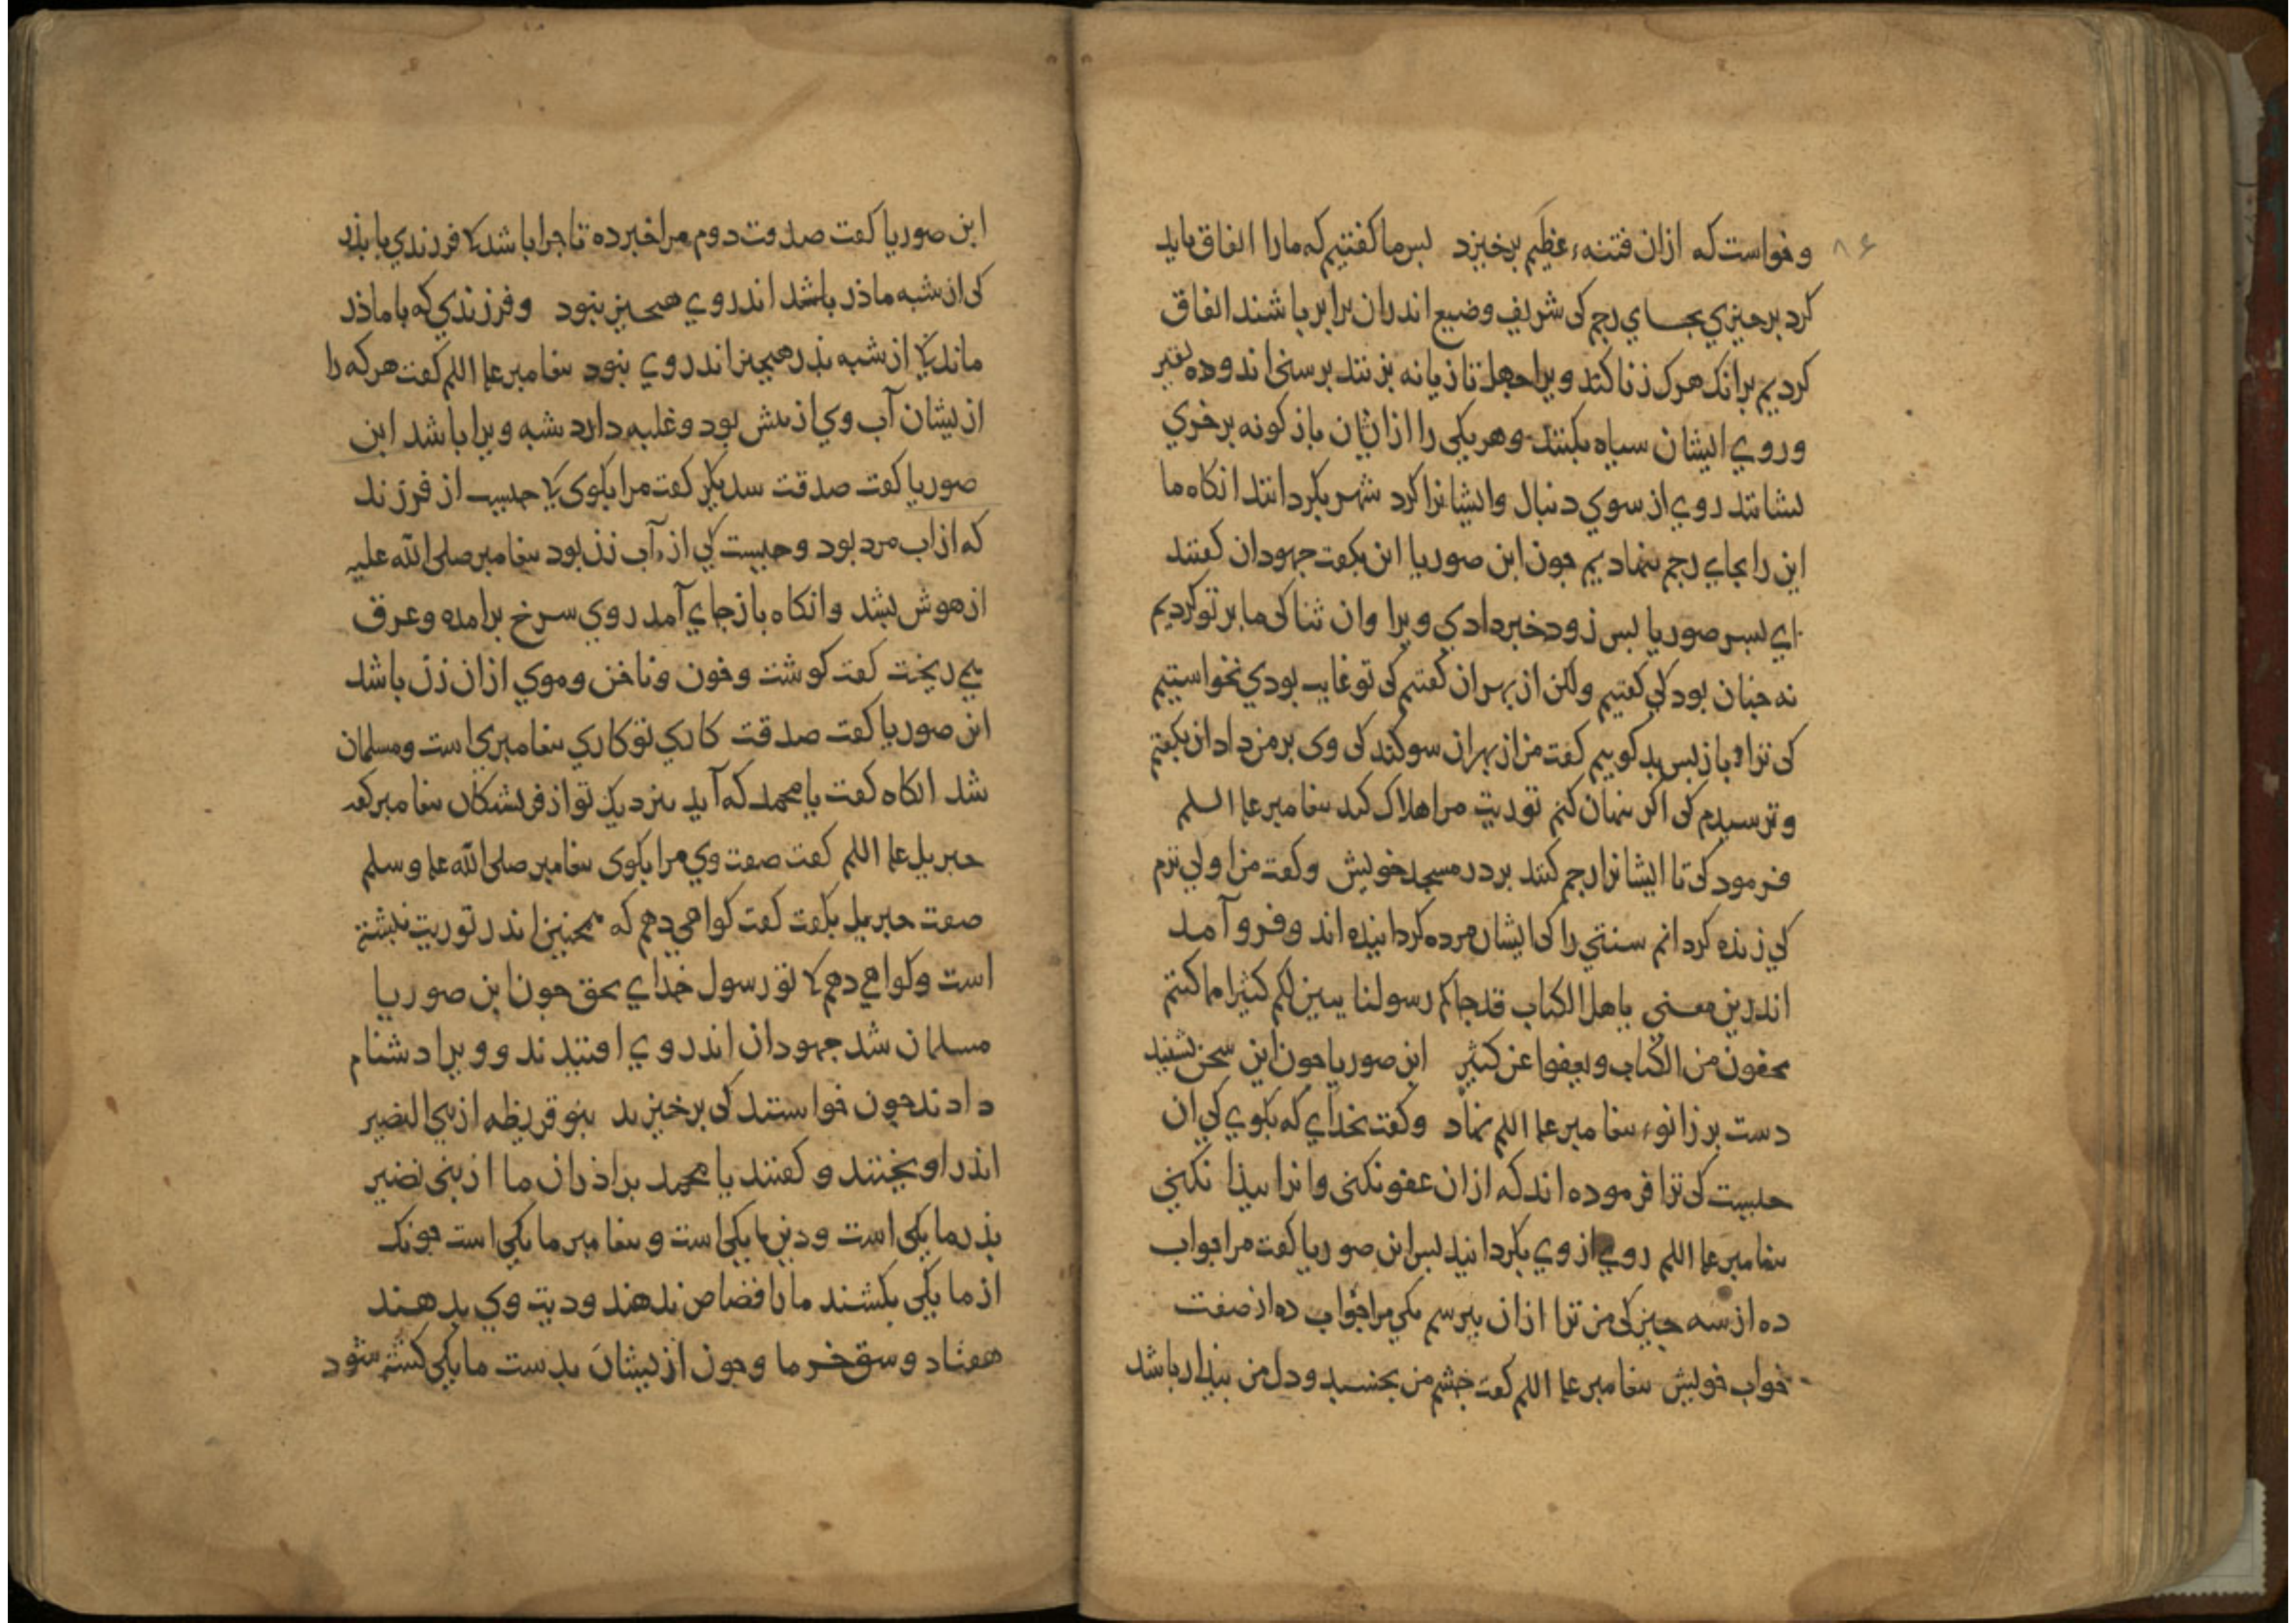 و خواست که ازان فتنهء عظیم برخیزد بس ما کفتیم که مارا اتفاق باید
۸۶
کرد بر جیزي بجاي رجم کی شریف وضیع اندران برابر باشند اتفاق
کردیم برانک هرک زنا کند ویرا جهل تازیانه بزنند برسنی اندوده بقیر
وروي ایشان سیاه بکنند وهر یکی را ازایشان بازکونه برخري
نشانند روي از سوي دنبال وایشانرا کرد شهر بکردانند انکاه ما
این را بجاي رجم بنهادیم جون ابن صوریا این بکفت جهودان کفتند
اي بسر صوریا بس زود خبر دادي ویرا وان ثنا کی ما بر تو کردیم
نه جنان بود کی کفتیم ولکن از بهر ان کفتیم کی تو غایب بودي نخواستیم
کی ترا باز بس بد کوییم کفت من از بهر ان سوکند کی وی بر من داد ان بکفتم
وترسیدم کی اکر بنهان کنم توریت مرا هلاک کند بیغامبر علیه السلم
فرمود کی تا ایشانرا رجم کنند بر در مسجد خویش وکفت من اولی ترم
کی زنده کردانم سنتي را کی ایشان مرده کردانیده اند وفرو آمد
اندرین معنی یاهل الکتاب قد جاکم رسولنا یبین لکم کثیرا مما کنتم
تخفون من الکتاب ویعفوا عن کثیر ابن صوریا جون این سخن بشنید
دست بر زانوء بیغامبر علیه السلم نهاد وکفت بخداي که بکوي کی ان
جیست کی ترا فرموده اند که ازان عفو نکنی وانرا بیدا نکنی
بیغامبر علیه السلم روي از وي بکردانید بس ابن صوریا کفت مرا جواب
ده از سه جیز کی من ترا ازان ببرسم یکی مرا جواب ده از صفت
خواب خویش بیغامبر علیه السلم کفت جشم من بخسبد ودل من بیذار باشد
ابن صوریا کفت صدقت دوم مرا خبر ده تا جرا باشد کی فرزندي با بذر
کی از شبه ماذر باشد اندروي هیجیز نبود وفرزندي که با ماذر
ماند کی از شبه بذر هیجیز اندروي نبود بیغامبر علیه السلم کفت هر که را
از ایشان آب وي از بیش بود وغلبه دارد شبه ویرا باشد ابن
صوریا کفت صدقت سدیکر کفت مرا بکوی کی جیست از فرزند
که از اب مرد بود وجیست کی از آب زن بود بیغامبر صلی الله علیه
از هوش بشد وانکاه باز جاي آمد روي سرخ برامده وعرق
می ریخت کفت کوشت وخون وناخن وموي ازان زن باشد
ابن صوریا کفت صدقت کاري تو کاري بیغامبري است ومسلمان
شد انکاه کفت یا محمد که آید بنزدیک تو از فریشتکان بیغامبر کفت
جبریل علیه السلم کفت صفت وي مرا بکوی بیغامبر صلی الله علیه وسلم
صفت جبریل بکفت کفت کواهی دهم که همجنین اندر توریت نبشته
است وکواهی دهم کی تو رسول خداي بحق جون ابن صوریا
مسلمان شد جهودان اندروي افتیدند وویرا دشنام
دادند جون خواستند کی برخیزند بنو قریظه از بنی النضیر
اندر اویختند وکفتند یا محمد براذران ما از بنی نضیر
بذر ما یکی است ودین ما یکی است وبیغامبر ما یکی است جونک
از ما یکی بکشند مارا قصاص ندهند ودیت وي بدهند
هفتاد وسق خرما وجون از ایشان بدست ما یکی کشته شود